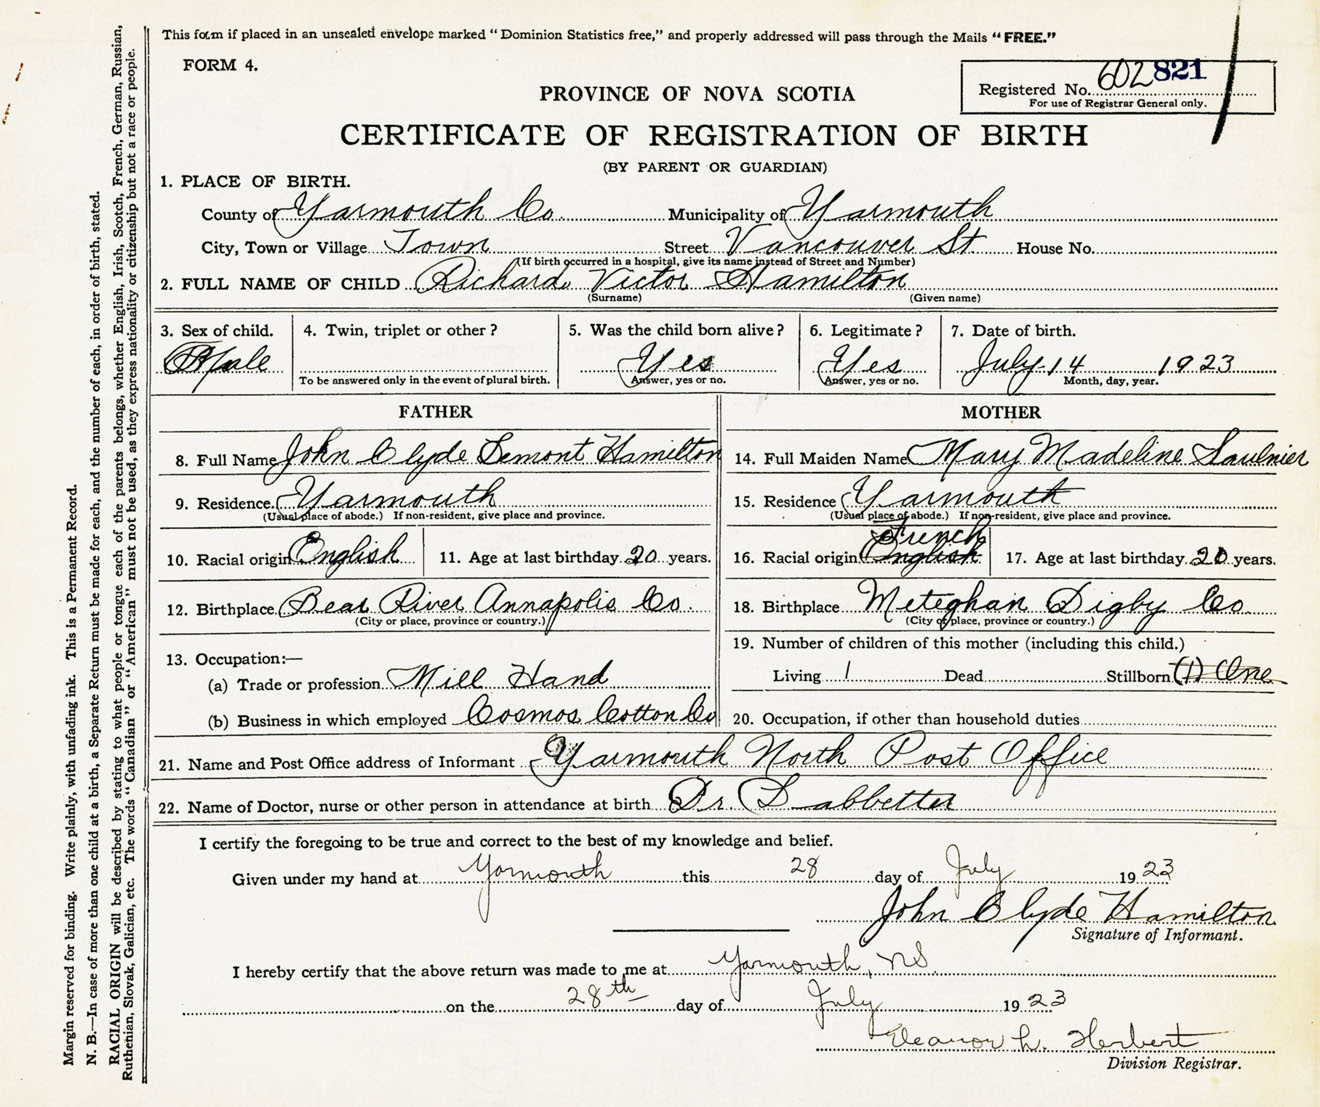 This form if placed in an unsealed envelope marked "Dominion Statistics free," and properly addressed will pass through the Mails "FREE."
FORM 4.
Registered No. 602821
For use of Registrar General only.
PROVINCE OF NOVA SCOTIA
CERTIFICATE OF REGISTRATION OF BIRTH
(BY PARENT OR GUARDIAN)
1. PLACE OF BIRTH.
County of Yarmouth Co. Municipality of Yarmouth
City, Town or Village Town Street Vancouver St. House No.
(If birth occurred in a hospital, give its name instead of Street and Number)
2. FULL NAME OF CHILD Richard Victor Hamilton
(Surname) (Given name)
3. Sex of child. 4. Twin, triplet or other? 5. Was the child born alive? 6. Legitimate? 7. Date of birth.
Male Yes Yes July 14 1923
To be answered only in the event of plural birth. Answer, yes or no. Answer, yes or no. Month, day, year.
FATHER MOTHER
8. Full Name John Clyde Lemont Hamilton 14. Full Maiden Name Mary Madeline Saulnier
9. Residence Yarmouth 15. Residence Yarmouth
(Usual place of abode.) If non-resident, give place and province. (Usual place of abode.) If non-resident, give place and province.
French
10. Racial origin English 11. Age at last birthday 20 years. 16. Racial origin English 17. Age at last birthday 20 years.
12. Birthplace Bear River Annapolis Co. 18. Birthplace Meteghan Digby Co
(City or place, province or country.) (City or place, province or country.)
19. Number of children of this mother (including this child.)
13. Occupation:—
(a) Trade or profession Mill Hand Living 1 Dead Stillborn (1) One
(b) Business in which employed Cosmos Cotton Co 20. Occupation, if other than household duties
21. Name and Post Office address of Informant Yarmouth North Post Office
22. Name of Doctor, nurse or other person in attendance at birth Dr.
I certify the foregoing to be true and correct to the best of my knowledge and belief.
Given under my hand at Yarmouth this 28 day of July 1923
John Clyde Hamilton
Signature of Informant.
I hereby certify that the above return was made to me at Yarmouth, NS.
on the 28th day of July 1923
Eleanor L. Herbert
Division Registrar.
Margin reserved for binding. Write plainly, with unfading ink. This is a Permanent Record.
N. B.—In case of more than one child at a birth, a Separate Return must be made for each, and the number of each, in order of birth, stated.
RACIAL ORIGIN will be described by stating to what people or tongue each of the parents belongs, whether English, Irish, Scotch, French, German, Russian,
Ruthenian, Slovak, Galician, etc. The words "Canadian" or "American" must not be used, as they express nationality or citizenship but not a race or people.